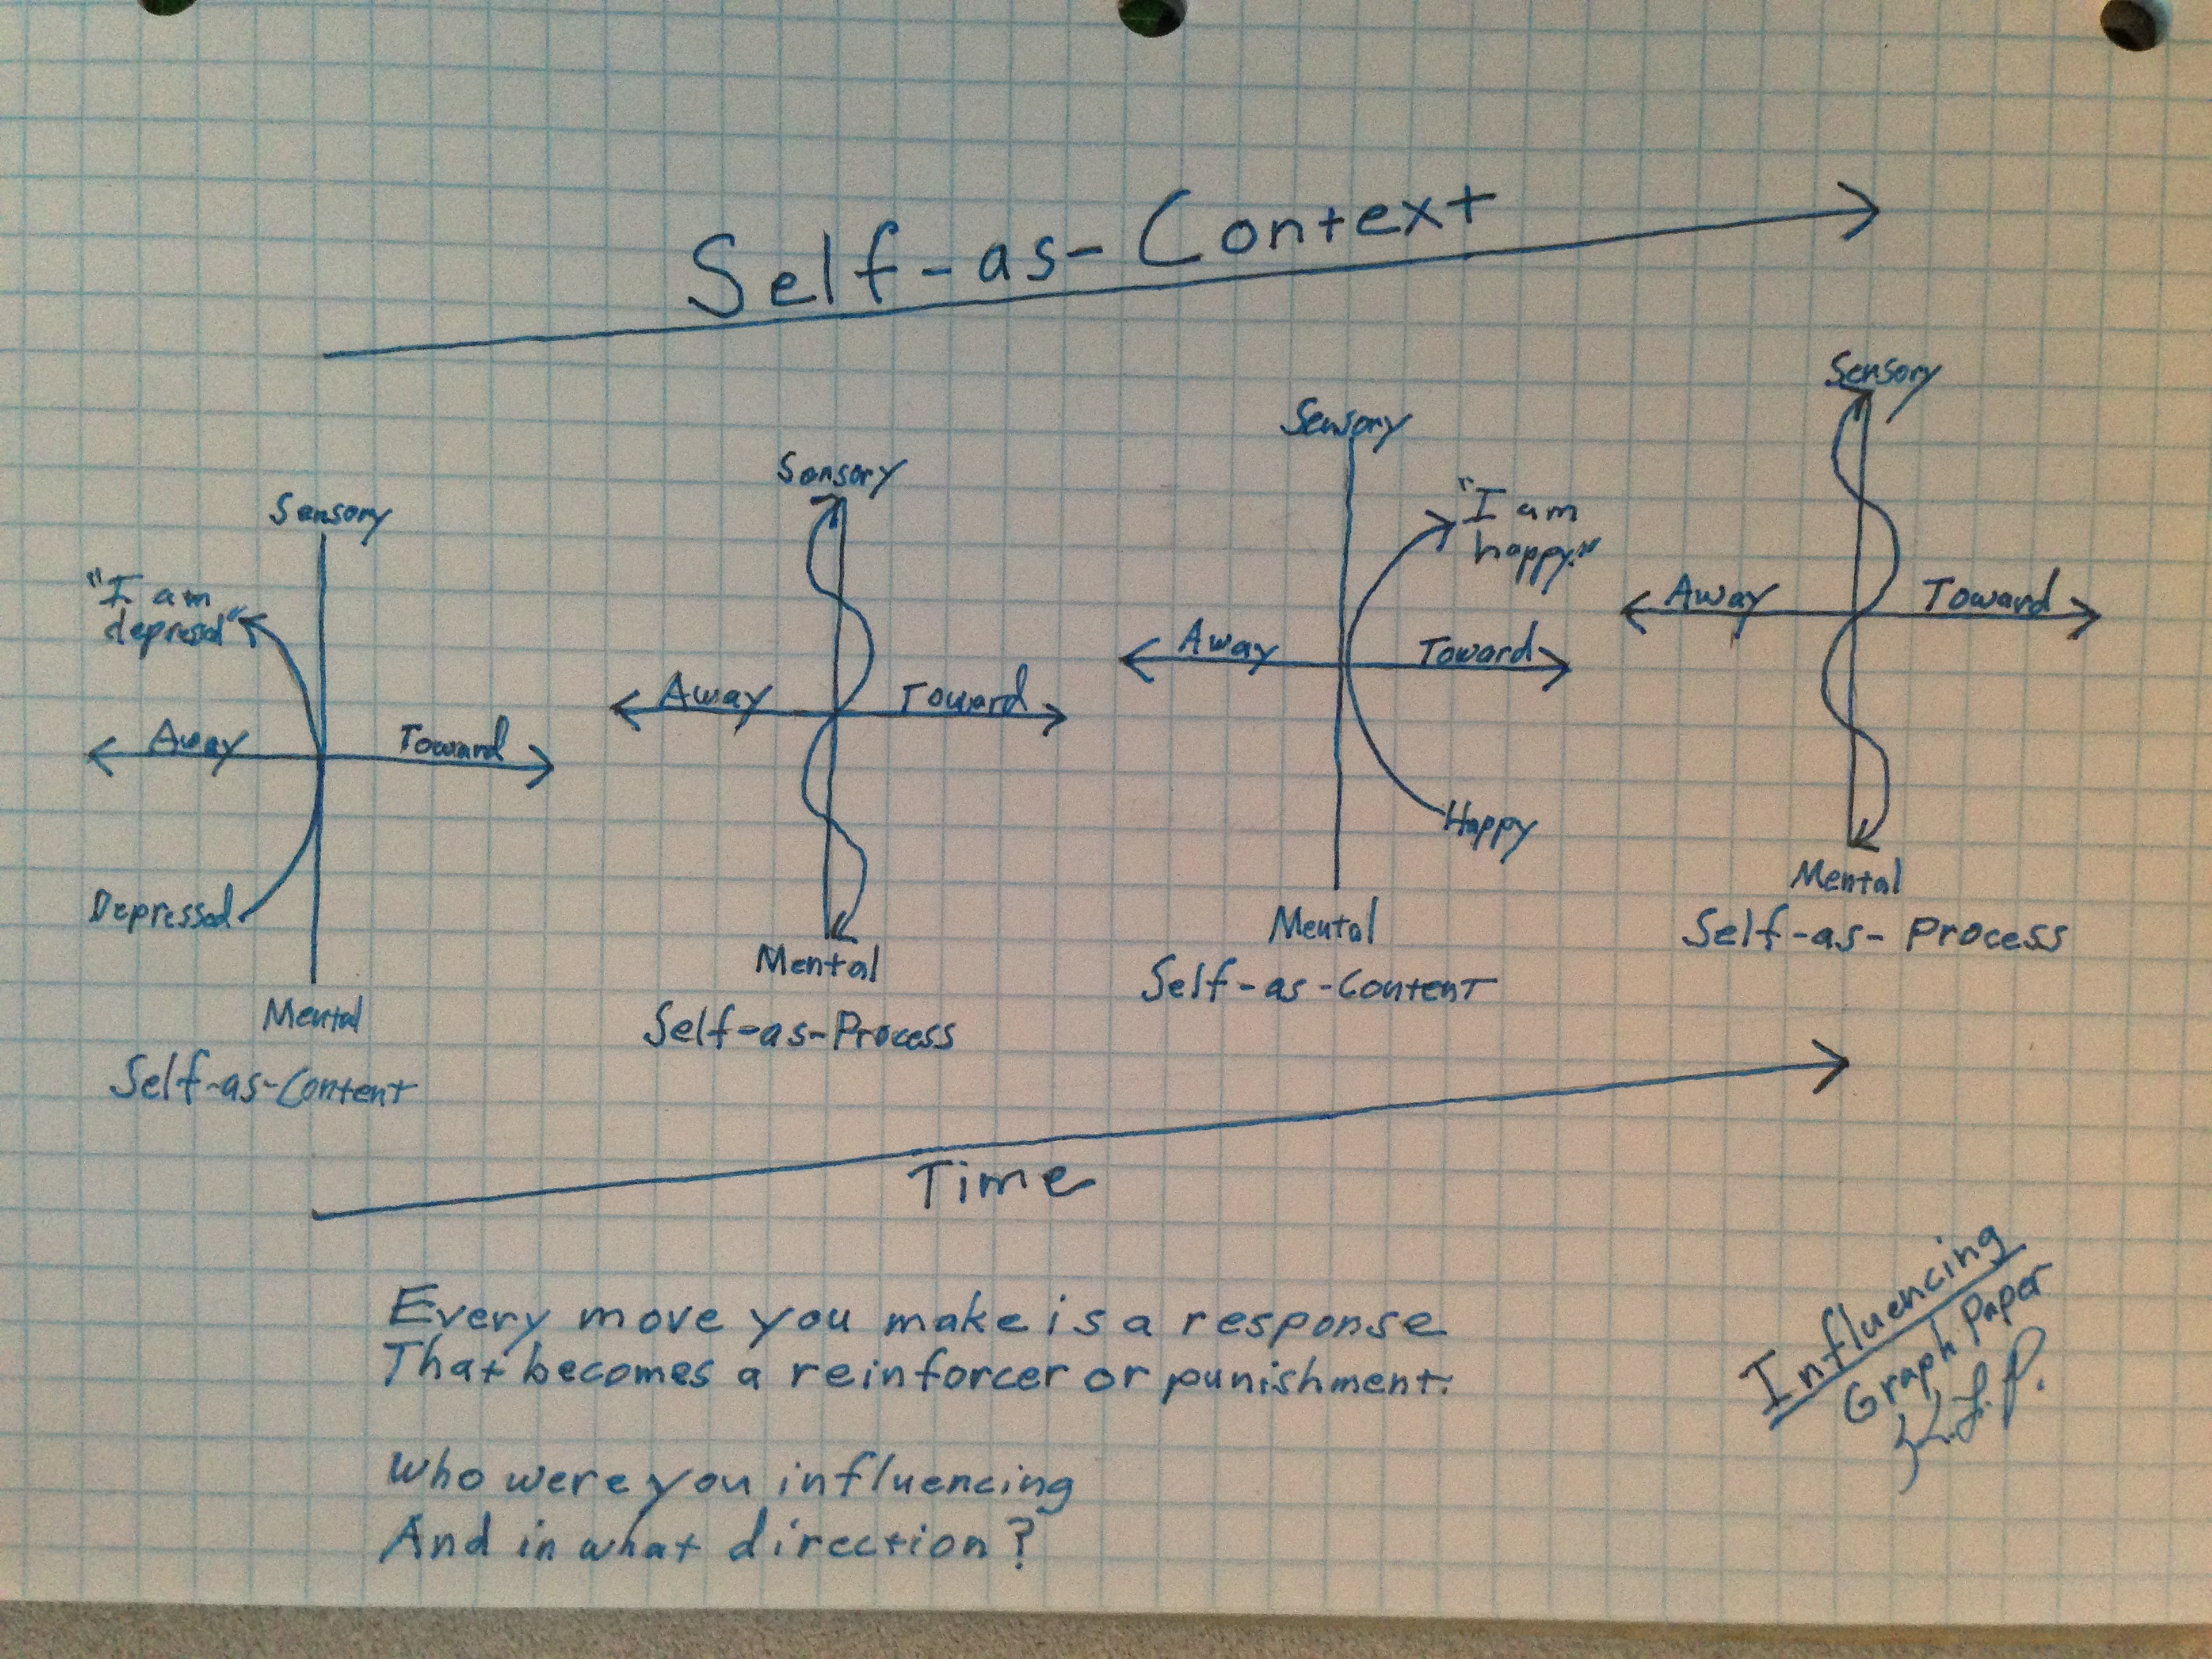 Self-as-Context
Sensory
"I am
depressd"
Away
Toward
Depressed
Mental
Self-as-Content
Sensory
Away
Toward
Mental
Self-as-Process
Sensory
"I am
happy."
Away
Toward
Happy
Mental
Self-as-Content
Sensory
Away
Toward
Mental
Self-as-Process
Time
Every move you make is a response
That becomes a reinforcer or punishment.
Who were you influencing
And in what direction?
Influencing
Graph Paper